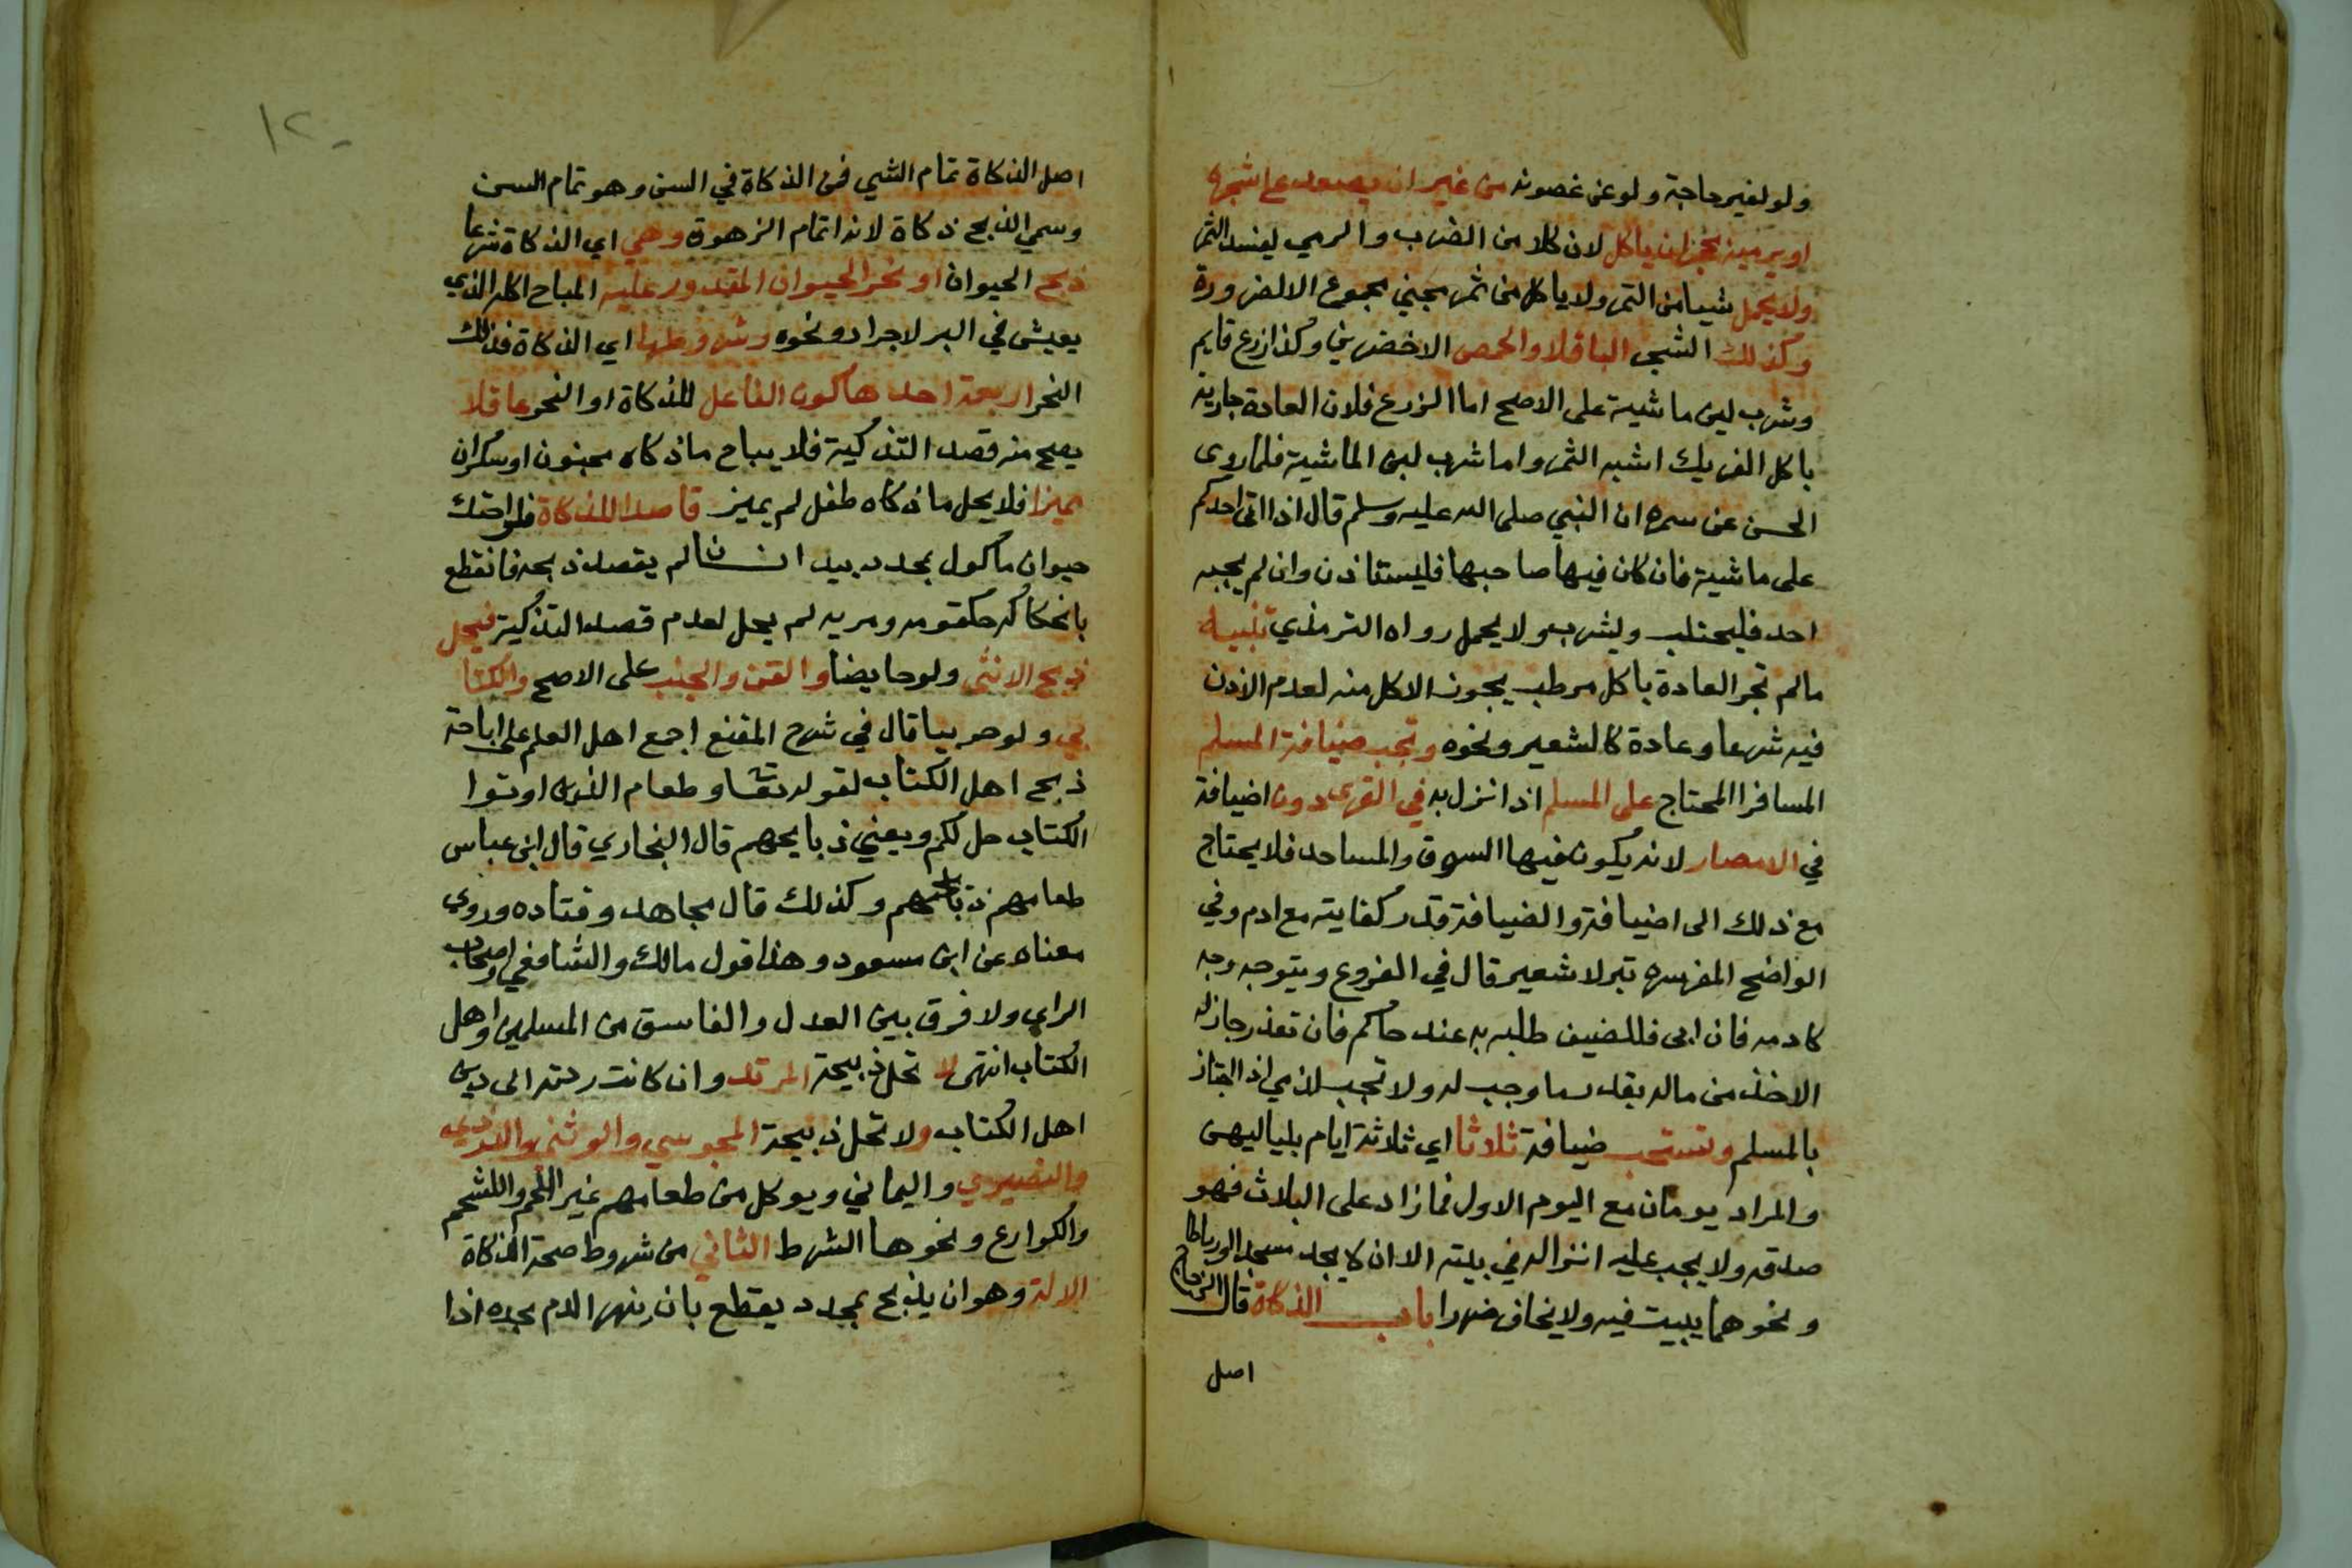 ولو لغير حاجة ولو عن غصونه من غير ان يصعد على شجره
او يرميه بحجر ان ياكل لان كلا من الضرب والرمي يفسد الثمر
ولا يحمل شيا من الثمر ولا ياكل من ثمر مجني مجموع الا لضرورة
وكذلك الشجر الباقلا والحمص الاخضرين وكذا زرع قايم
وشرب لبن ماشية على الاصح اما الزرع فلان العادة جارية
باكل الفريك اشبه الثمر واما شرب لبن الماشية فلما روى
الحسن عن سمره ان النبي صلى الله عليه وسلم قال اذا اتى احدكم
على ماشية فان كان فيها صاحبها فليستاذن وان لم يجبه
احد فليحتلب وليشرب ولا يحمل رواه الترمذي تنبيه
مالم تجر العادة باكل مرطب يجون الاكل منه لعدم الاذن
فيه شرعا وعادة كالشعير ونحوه وتجب ضيافة المسلم
المسافر المحتاج على المسلم اذا نزل به في القرى دون اضيافة
في الامصار لانه يكون فيها السوق والمساجد فلا يحتاج
مع ذلك الى اضيافة والضيافة قدر كفايته مع ادم وفي
الواضح لفرسه تبر لا شعير قال في الفروع ويتوجه وجه
كادمه فان ابى فللضيف طلبه به عند حاكم فان تعذر جاز له
الاخذ من ماله بقدر ما وجب له ولا تجب لذمي اذا اجتاز
بالمسلم وتستحب ضيافة ثلاثا اي ثلاثة ايام بلياليهن
والمراد يومان مع اليوم الاول فما زاد على الثلاث فهو
صدقة ولا يجب عليه انزاله في بيته الا ان لا يجد مسجدا او رباطا
ونحوهما يبيت فيه ولا يخاف ضررا باب الذكاة قال الزجاج
اصل
١٢٠
اصل الذكاة تمام الشي فمن الذكاة في السن وهو تمام السن
وسمي الذبح ذكاة لانه اتمام الزهوة وهي اي الذكاة شرعا
ذبح الحيوان او نحر الحيوان المقدور عليه المباح اكله الذي
يعيش في البر لا جراد ونحوه وشروطها اي الذكاة فذلك
النحر اربعة احدها كون الفاعل للذكاة او النحر عاقلا
يصح منه قصد التذكية فلا يباح ما ذكاه مجنون او سكران
مميزا فلا يحل ما ذكاه طفل لم يميز قاصدا للذكاة فلو احتك
حيوان ماكول بمحدد بيد انسان لم يقصد ذبحه فانقطع
بانحكاكه حلقومه ومريه لم يحل لعدم قصد التذكية فيحل
ذبح الانثى ولو حايضا والقن والجنب على الاصح والكتا
بي ولو حربيا قال في شرح المقنع اجمع اهل العلم على اباحة
ذبح اهل الكتاب لقوله تعا وطعام الذين اوتوا
الكتاب حل لكم ويعني ذبايحهم قال البخاري قال ابن عباس
طعامهم ذبايحهم وكذلك قال مجاهد وقتاده وروى
معناه عن ابن مسعود وهذا قول مالك والشافعي واصحاب
الراي ولا فرق بين العدل والفاسق من المسلمين واهل
الكتاب انتهى لا تحل ذبيحة المرتد وان كانت ردته الى دين
اهل الكتاب ولا تحل ذبيحة المجوسي والوثني والدرزي
والنصيري واليماني ويوكل من طعامهم غير اللحم والشحم
والكوارع ونحوها الشرط الثاني من شروط صحة الذكاة
الالة وهو ان يذبح بمحدد يقطع بان ينهر الدم بحده اذا